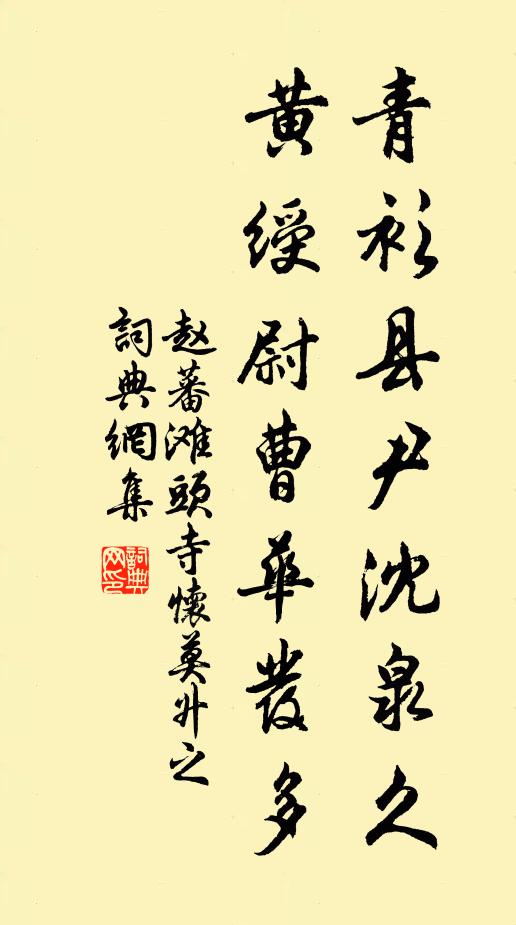 青衫县尹沈泉久
黄绶尉曹華發多
赵蕃滩頭寺懷莫升之
詞典網集
詞典网印